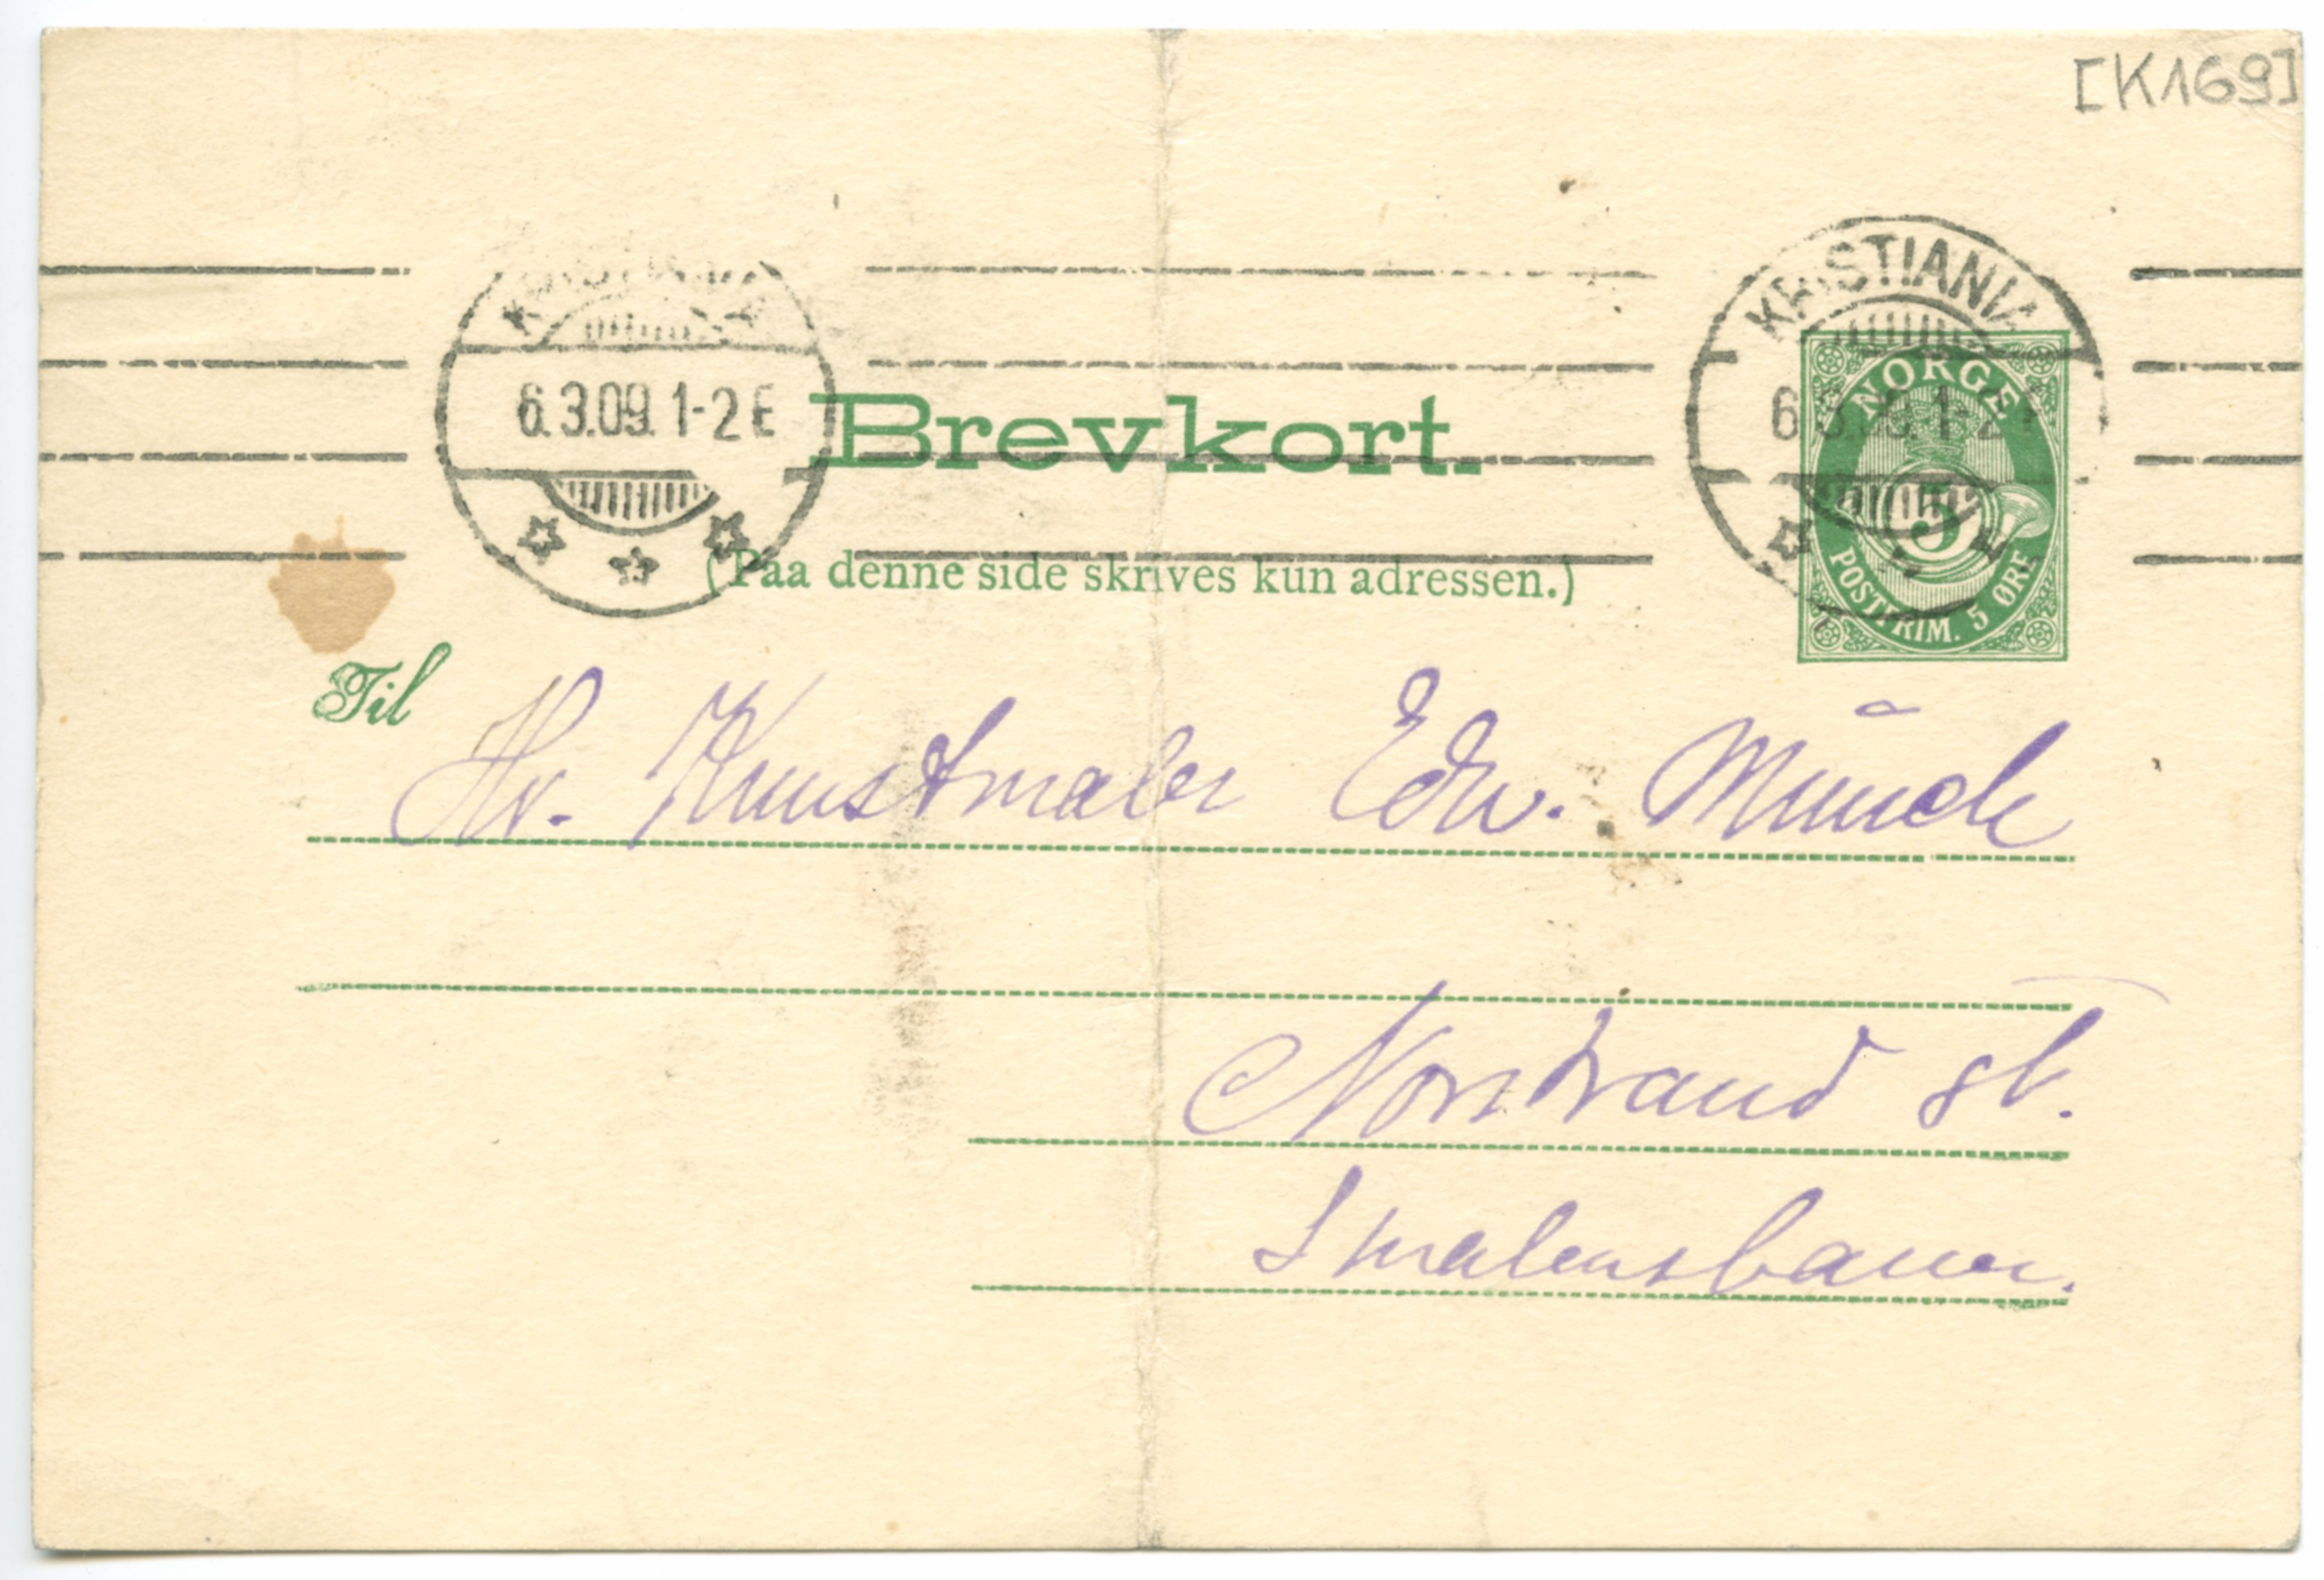 [K169]
KRISTIANIA
6.3.09. 1-2 E
KRISTIANIA
6.3.09. 1-2 E
NORGE
5
POSTFRIM. 5 ØRE
Brevkort.
(Paa denne side skrives kun adressen.)
Til
Hr. Kunstmaler Edv. Münch
Norstrand st.
Smalensbanen.